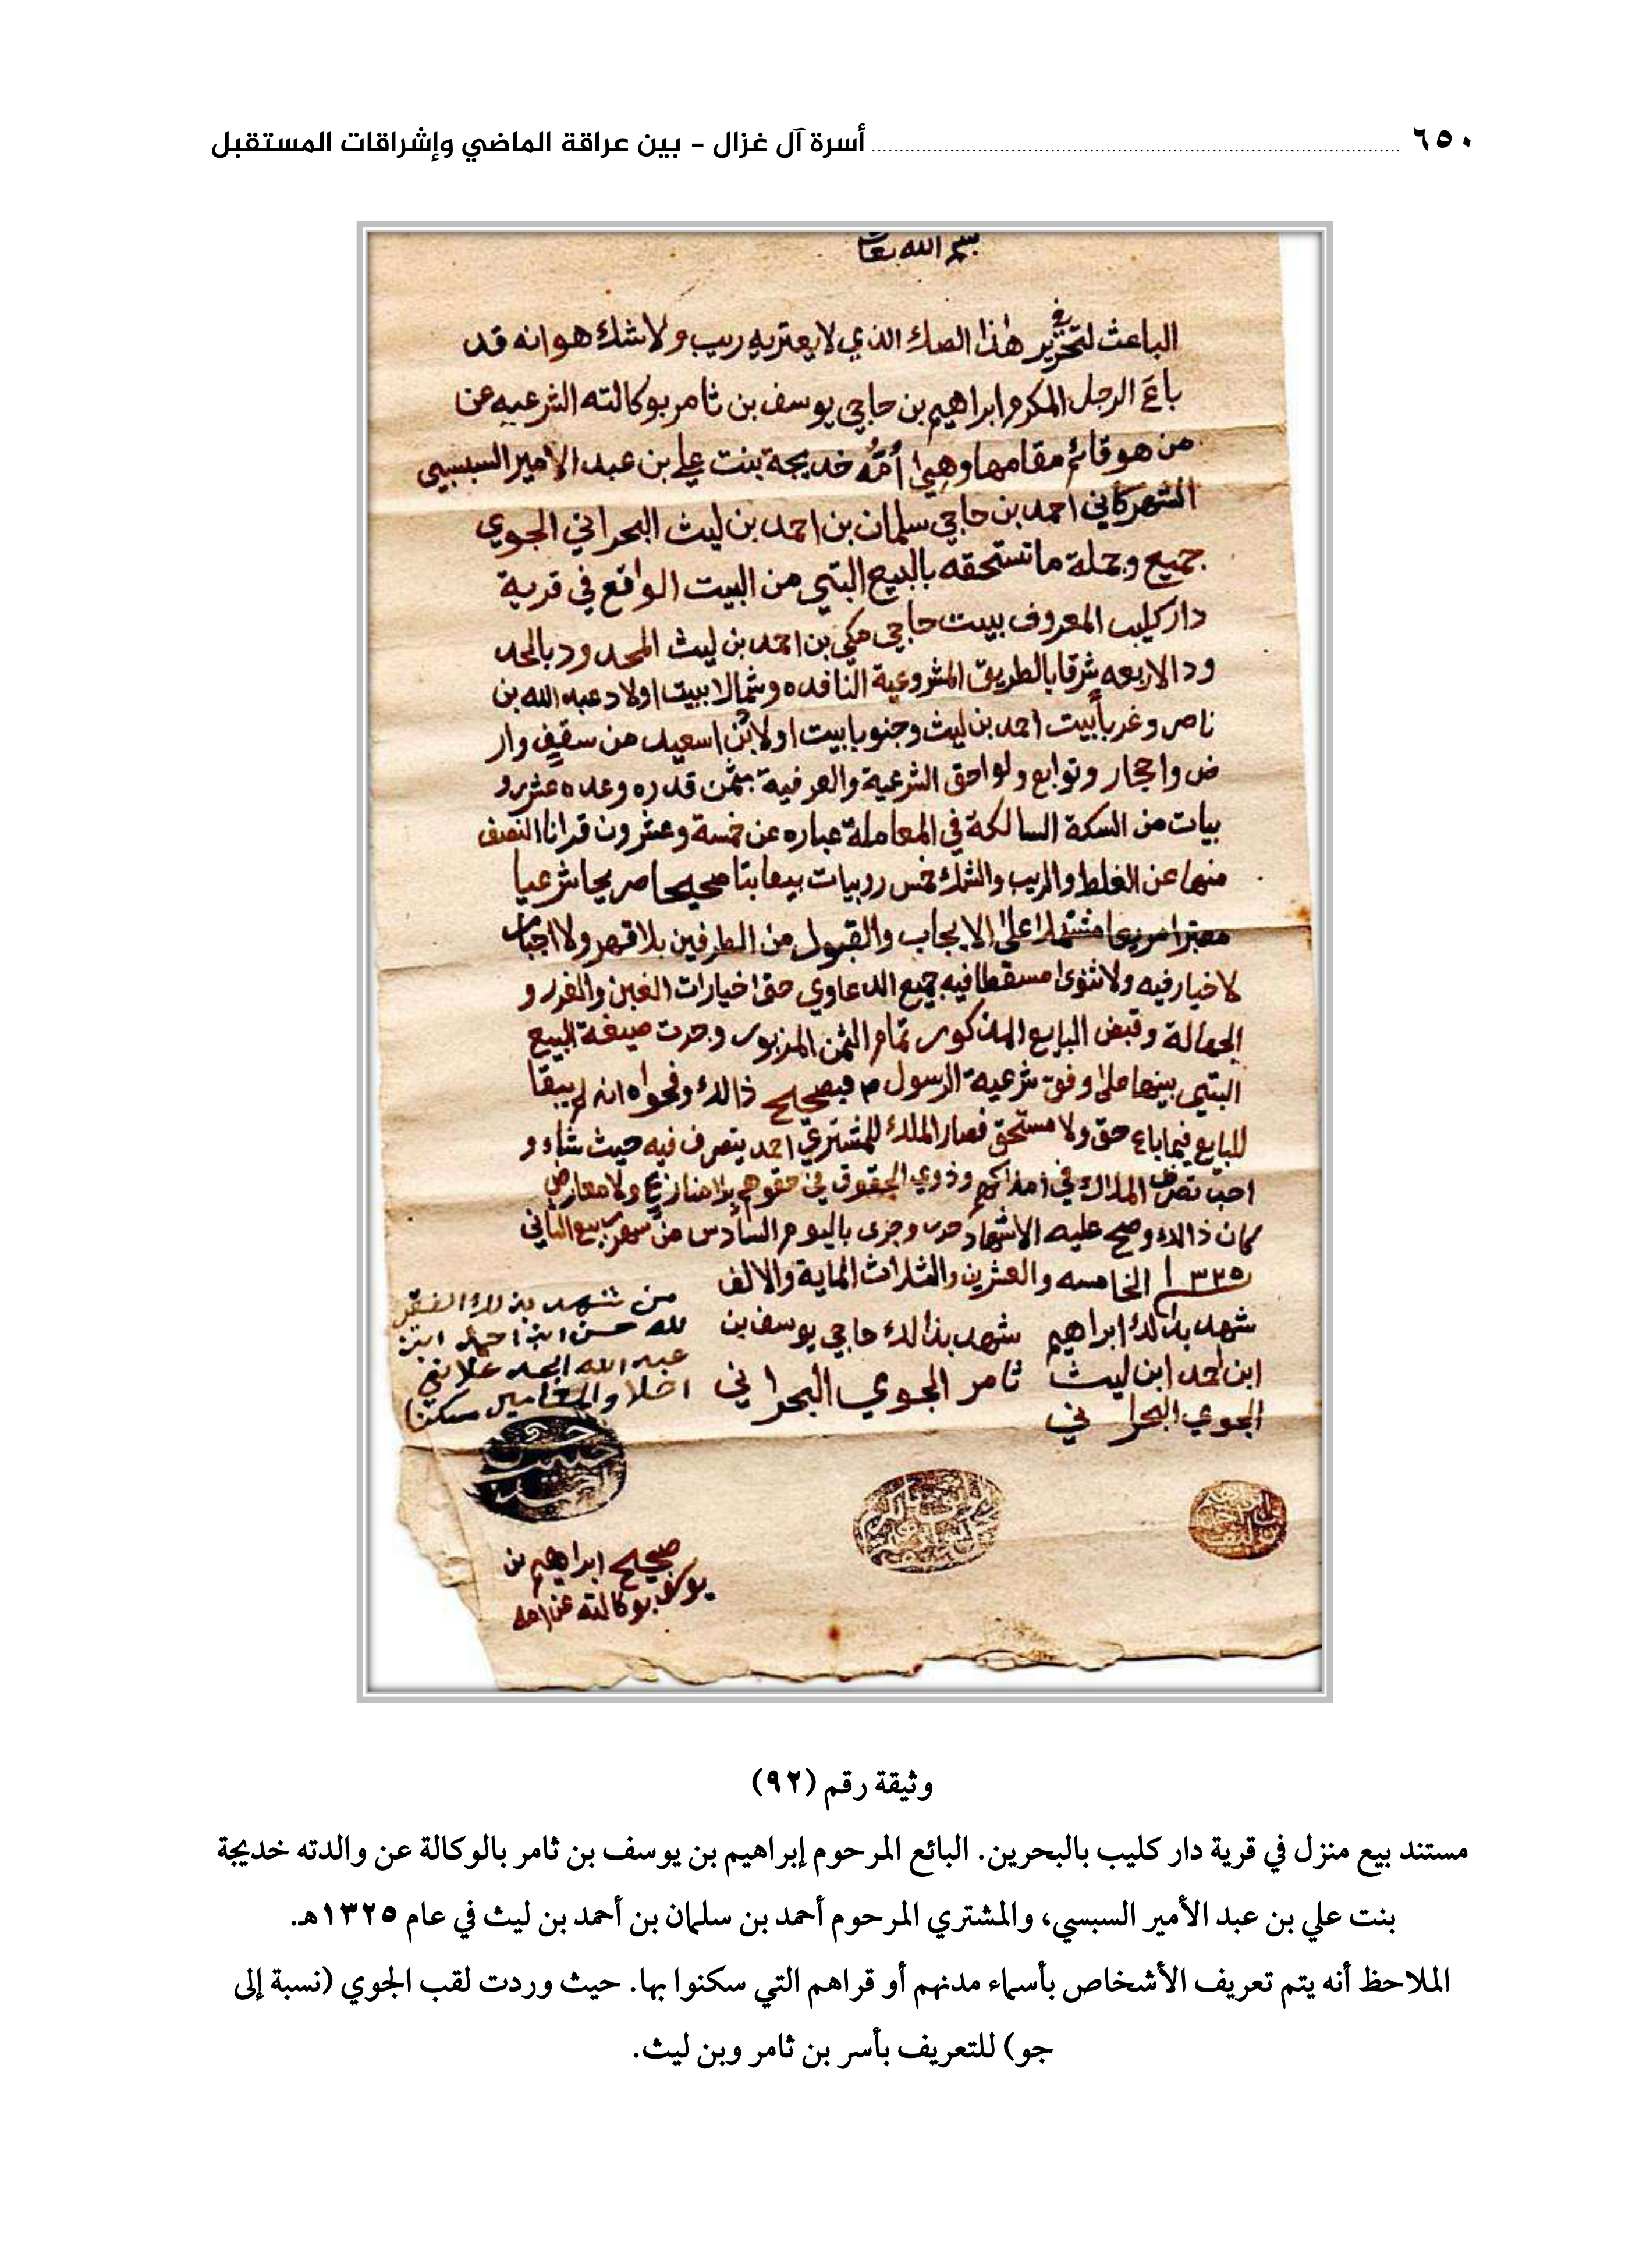 ٦٥٠ أسرة آل غزال - بين عراقة الماضي وإشراقات المستقبل
بسم الله تعا
الباعث لتحرير هذا الصك الذي لا يعتريه ريب ولا شك هو انه قد
باع الرجل المكرم ابراهيم بن حاجي يوسف بن ثامر بوكالته الشرعيه عن
من هو قائم مقامها وهي أمّه خديجة بنت علي بن عبد الامير السبسبي
الشهركاني احمد بن حاجي سلمان بن احمد بن ليث البحراني الجوي
جميع وجملة ما تستحقه بالبيع البتي من البيت الواقع في قرية
دار كليب المعروف ببيت حاجي مكي بن احمد بن ليث المحدود بالحد
ود الاربعه شرقا بالطريق المشروعية النافده وشمالا ببيت اولاد عبد الله بن
ناصر وغربا بيت احمد بن ليث وجنوبا بيت اولا بن اسعيد من سقيف وار
ض واحجار وتوابع ولواحق الشرعية والعرفية بثمن قدره وعده عشر رو
بيات من السكة السالكة في المعاملة عباره عن خمسة وعشرون قرانا النصف
منها عن الغلط والريب والشك خمس روبيات بيعا بتا صحيحا صريحا شرعيا
معتبرا مشتملا على الايجاب والقبول من الطرفين بلا قهر ولا اجبار
لا خيار فيه ولا ثنوى مسقطا فيه جميع الدعاوي حتى خيارات الغبن والغرر و
الجهالة وقبض البايع المذكور تمام الثمن المزبور وجرت صيغة البيع
البتي بينهما على وفق شرعية الرسول م فبصحيح ذالك وفحواه انه لم يبقا
للبايع فيما باع حق ولا مستحق فصار الملك للمشتري احمد يتصرف فيه حيث شاء و
احب تصرف الملاك في املاكهم وذوي الحقوق في حقوقهم بلا منازع ولا معارض
كان ذالك وصح عليه الاشهاد حرر وجرى باليوم السادس من شهر ربيع الثاني
١٣٢٥ الخامسه والعشرين والثلاث الماية والالف
شهد بذالك ابراهيم
ابن احمد ابن ليث
الجوي البحراني
شهد بذالك حاجي يوسف بن
ثامر الجوي البحراني
من شهد بذلك الفقير
لله حسن ابن احمد ابن
عبد الله
اصلا سكنا
صحيح ابراهيم بن
يوسف بوكالته عن امه
وثيقة رقم (٩٢)
مستند بيع منزل في قرية دار كليب بالبحرين. البائع المرحوم إبراهيم بن يوسف بن ثامر بالوكالة عن والدته خديجة
بنت علي بن عبد الأمير السبسي، والمشتري المرحوم أحمد بن سلمان بن أحمد بن ليث في عام ١٣٢٥هـ.
الملاحظ أنه يتم تعريف الأشخاص بأسماء مدنهم أو قراهم التي سكنوا بها. حيث وردت لقب الجوي (نسبة إلى
جو) للتعريف بأسر بن ثامر وبن ليث.